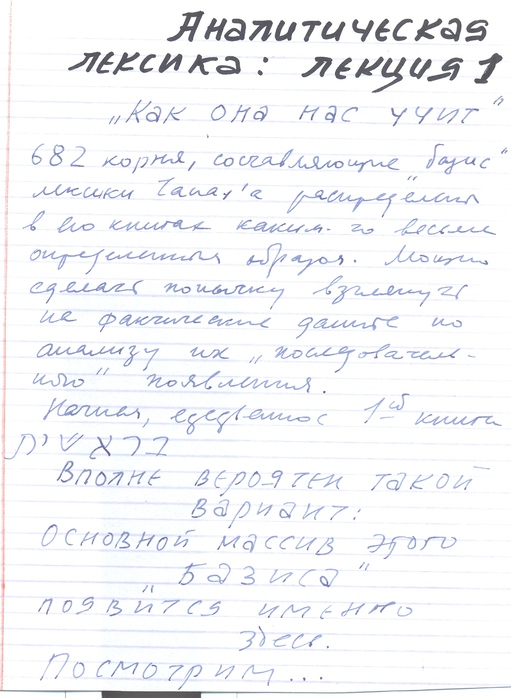 Аналитическая
лексика: лекция 1
„Как она нас учит"
682 корня, составляющие „базис"
лексики Танах'а распределены
в его книгах каким-то весьма
определенным образом. Можно
сделать попытку взглянуть
на фактические данные по
анализу их „последователь-
ного" появления.
Начиная, 1-ой книги
בראשית
Вполне вероятен такой
вариант:
Основной массив этого
„Базиса"
появится именно
здесь.
Посмотрим...